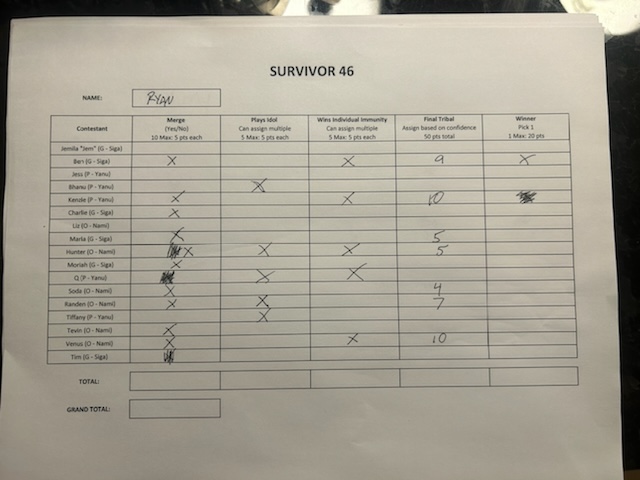 SURVIVOR 46
NAME: RYAN
Contestant Merge (Yes/No) 10 Max: 5 pts each Plays Idol Can assign multiple 5 Max: 5 pts each Wins Individual Immunity Can assign multiple 5 Max: 5 pts each Final Tribal Assign based on confidence 50 pts total Winner Pick 1 1 Max: 20 pts
Jemila "Jem" (G - Siga)
Ben (G - Siga) X X 9 X
Jess (P - Yanu)
Bhanu (P - Yanu) X
Kenzie (P - Yanu) X X 10
Charlie (G - Siga) X
Liz (O - Nami)
Maria (G - Siga) X 5
Hunter (O - Nami) X X X 5
Moriah (G - Siga) X
Q (P - Yanu) X X
Soda (O - Nami) X 4
Randen (O - Nami) X X 7
Tiffany (P - Yanu) X
Tevin (O - Nami) X
Venus (O - Nami) X X 10
Tim (G - Siga)
TOTAL:
GRAND TOTAL: